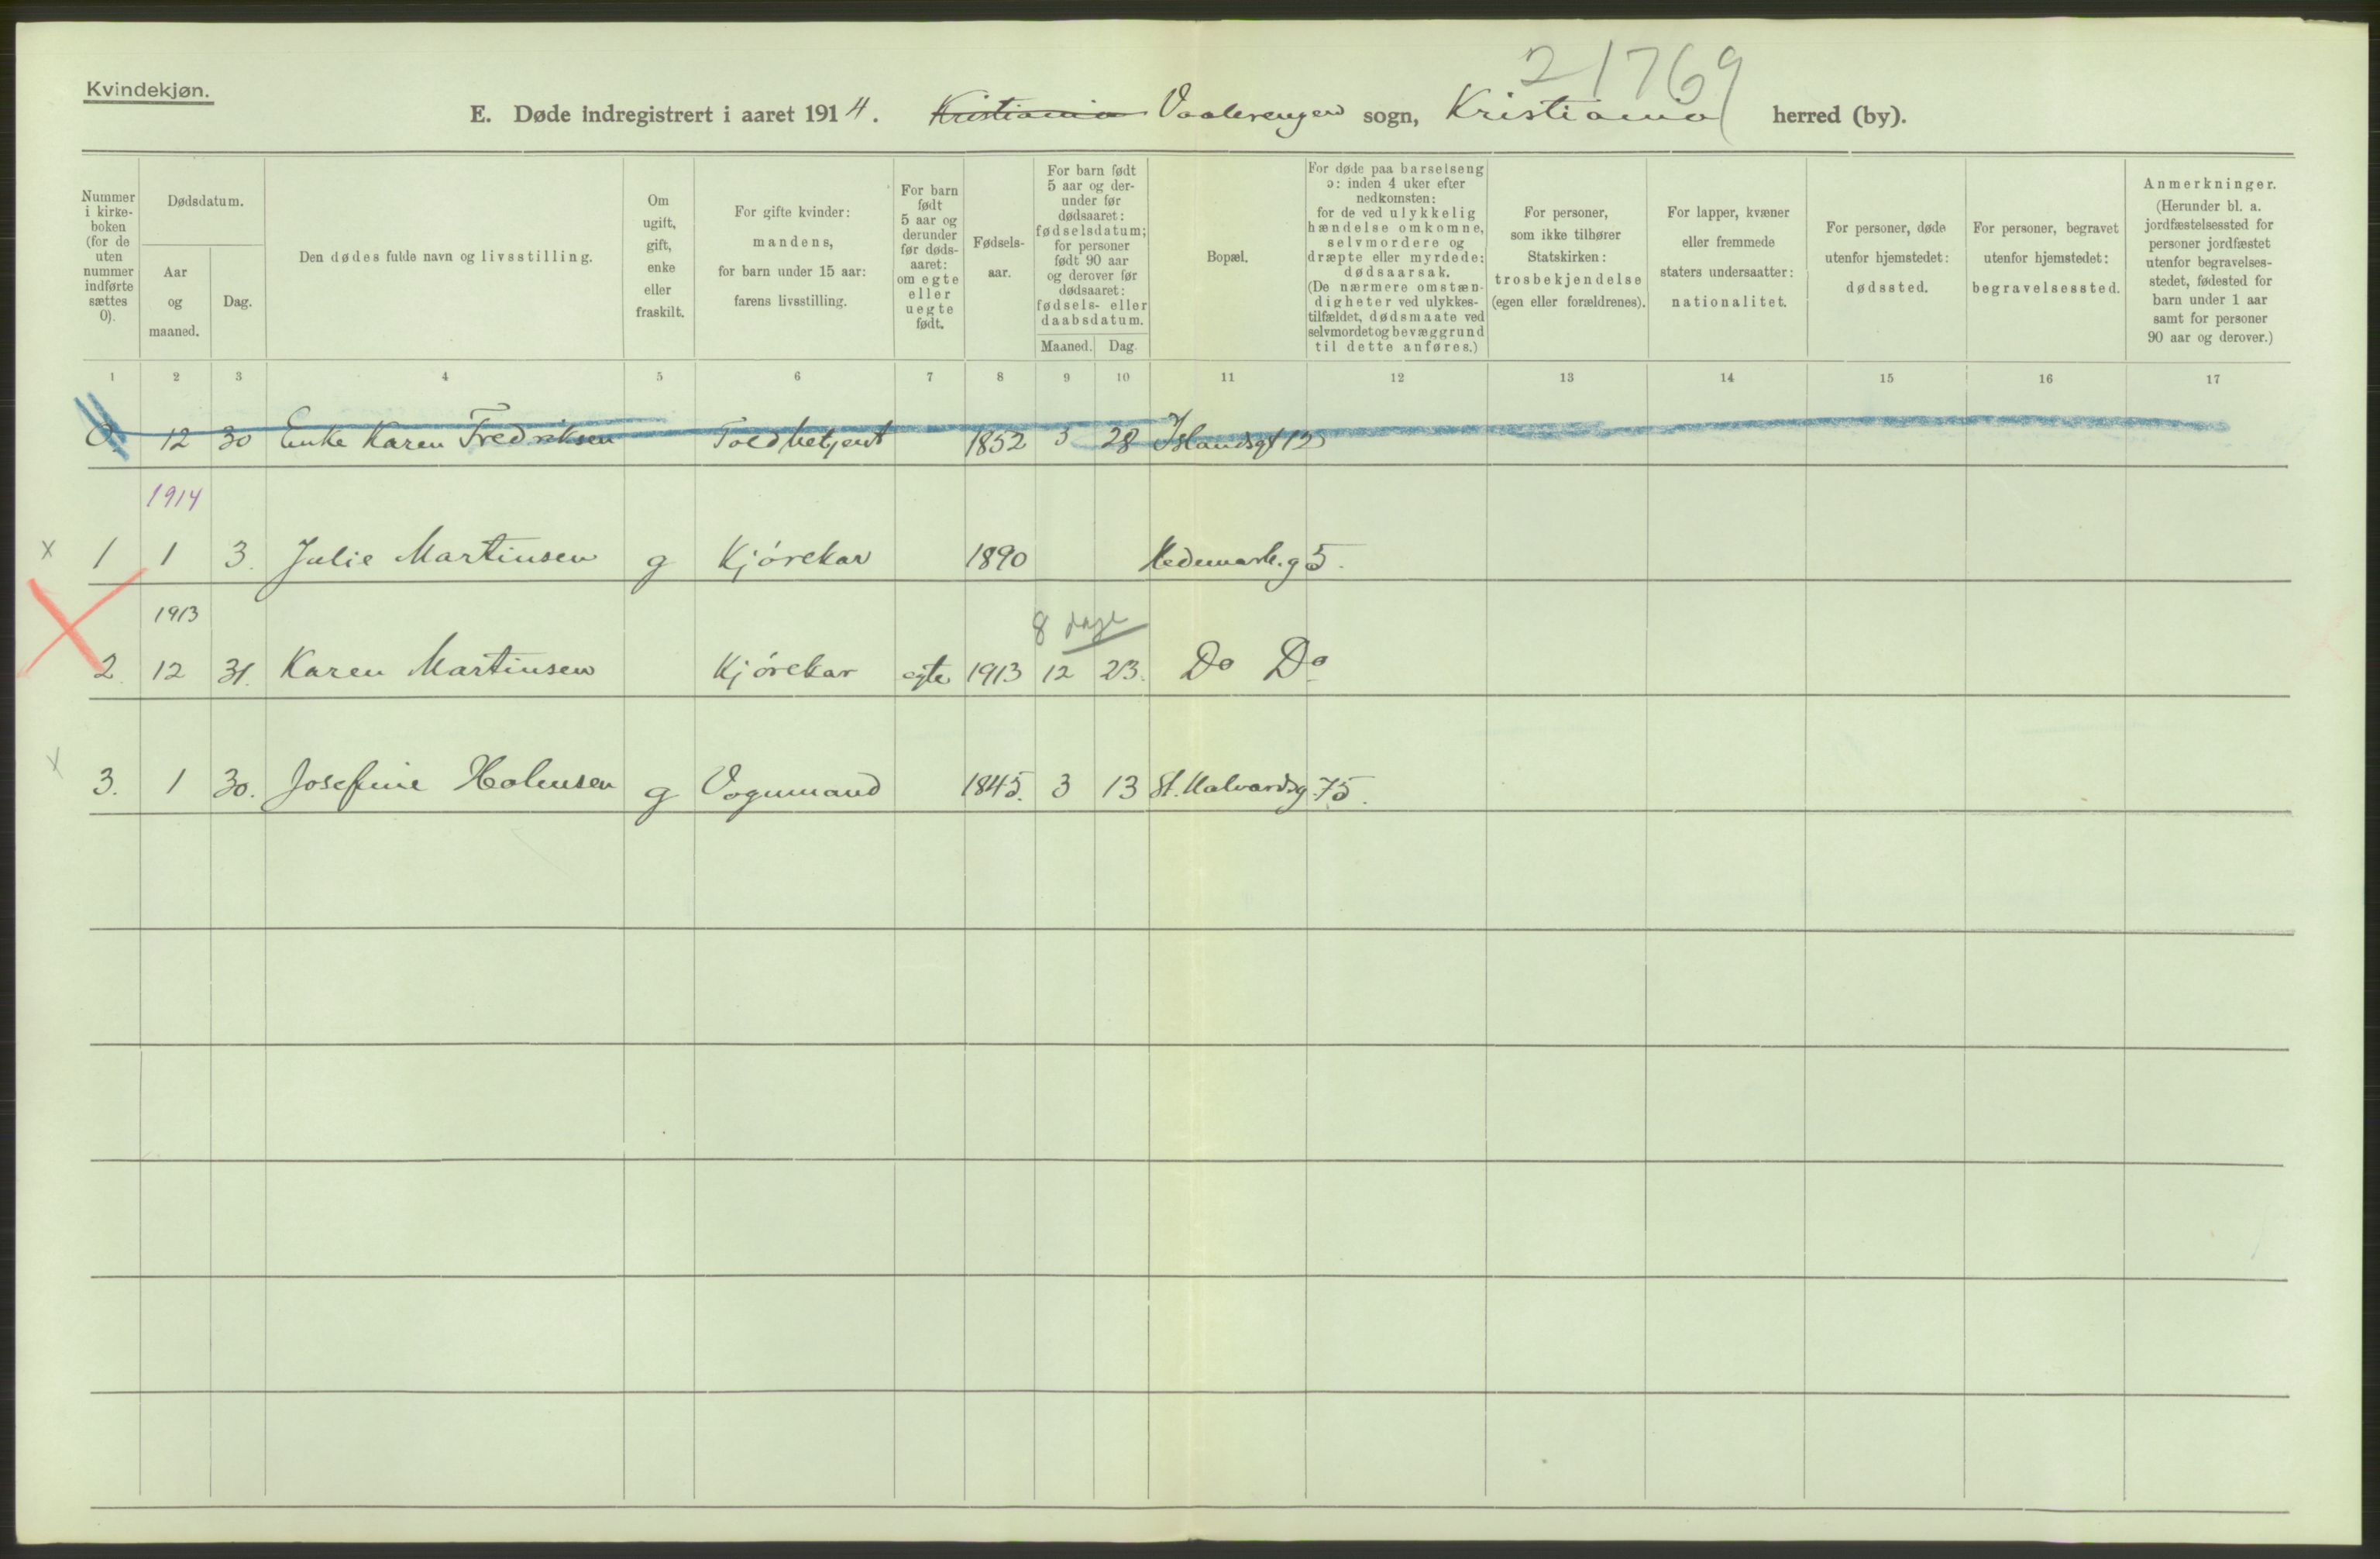 21769
Kvindekjøn.
E. Døde indregistrert i aaret 1914. Kristiania Vaalerengen sogn, Kristiania herred (by).
Nummer i kirke-boken (for de uten nummer indførte sættes 0).
Dødsdatum.
Aar og maaned.
Dag.
Den dødes fulde navn og livsstilling.
Om ugift, gift, enke eller fraskilt.
For gifte kvinder: mandens, for barn under 15 aar: farens livsstilling.
For barn født 5 aar og derunder før døds-aaret: om egte eller uegte født.
Fødsels-aar.
For barn født 5 aar og der-under før dødsaaret: fødselsdatum; for personer født 90 aar og derover før dødsaaret: fødsels- eller daabsdatum.
Maaned. Dag.
Bopæl.
For døde paa barselseng ɔ: inden 4 uker efter nedkomsten: for de ved ulykkelig hændelse omkomne, selvmordere og dræpte eller myrdede: dødsaarsak. (De nærmere omstæn-digheter ved ulykkes-tilfældet, dødsmaate ved selvmordet og bevæggrund til dette anføres.)
For personer, som ikke tilhører Statskirken: trosbekjendelse (egen eller forældrenes).
For lapper, kvæner eller fremmede staters undersaatter: nationalitet.
For personer, døde utenfor hjemstedet: dødssted.
For personer, begravet utenfor hjemstedet: begravelsessted.
Anmerkninger. (Herunder bl. a. jordfæstelsessted for personer jordfæstet utenfor begravelses-stedet, fødested for barn under 1 aar samt for personer 90 aar og derover.)
1 2 3 4 5 6 7 8 9 10 11 12 13 14 15 16 17
0. 12 30 Enke Karen Fredriksen Toldbetjent 1852 3 28 Islandsgt 12
1914
x 1 1 3. Julie Martinsen g Kjørekar 1890 Hedemark.g 5.
1913
8 dage
2. 12 31. Karen Martinsen Kjørekar egte 1913 12 23. Do Do
x 3. 1 30. Josefine Holmsen g Vognmand 1845. 3 13 St. Halvardsg. 75.